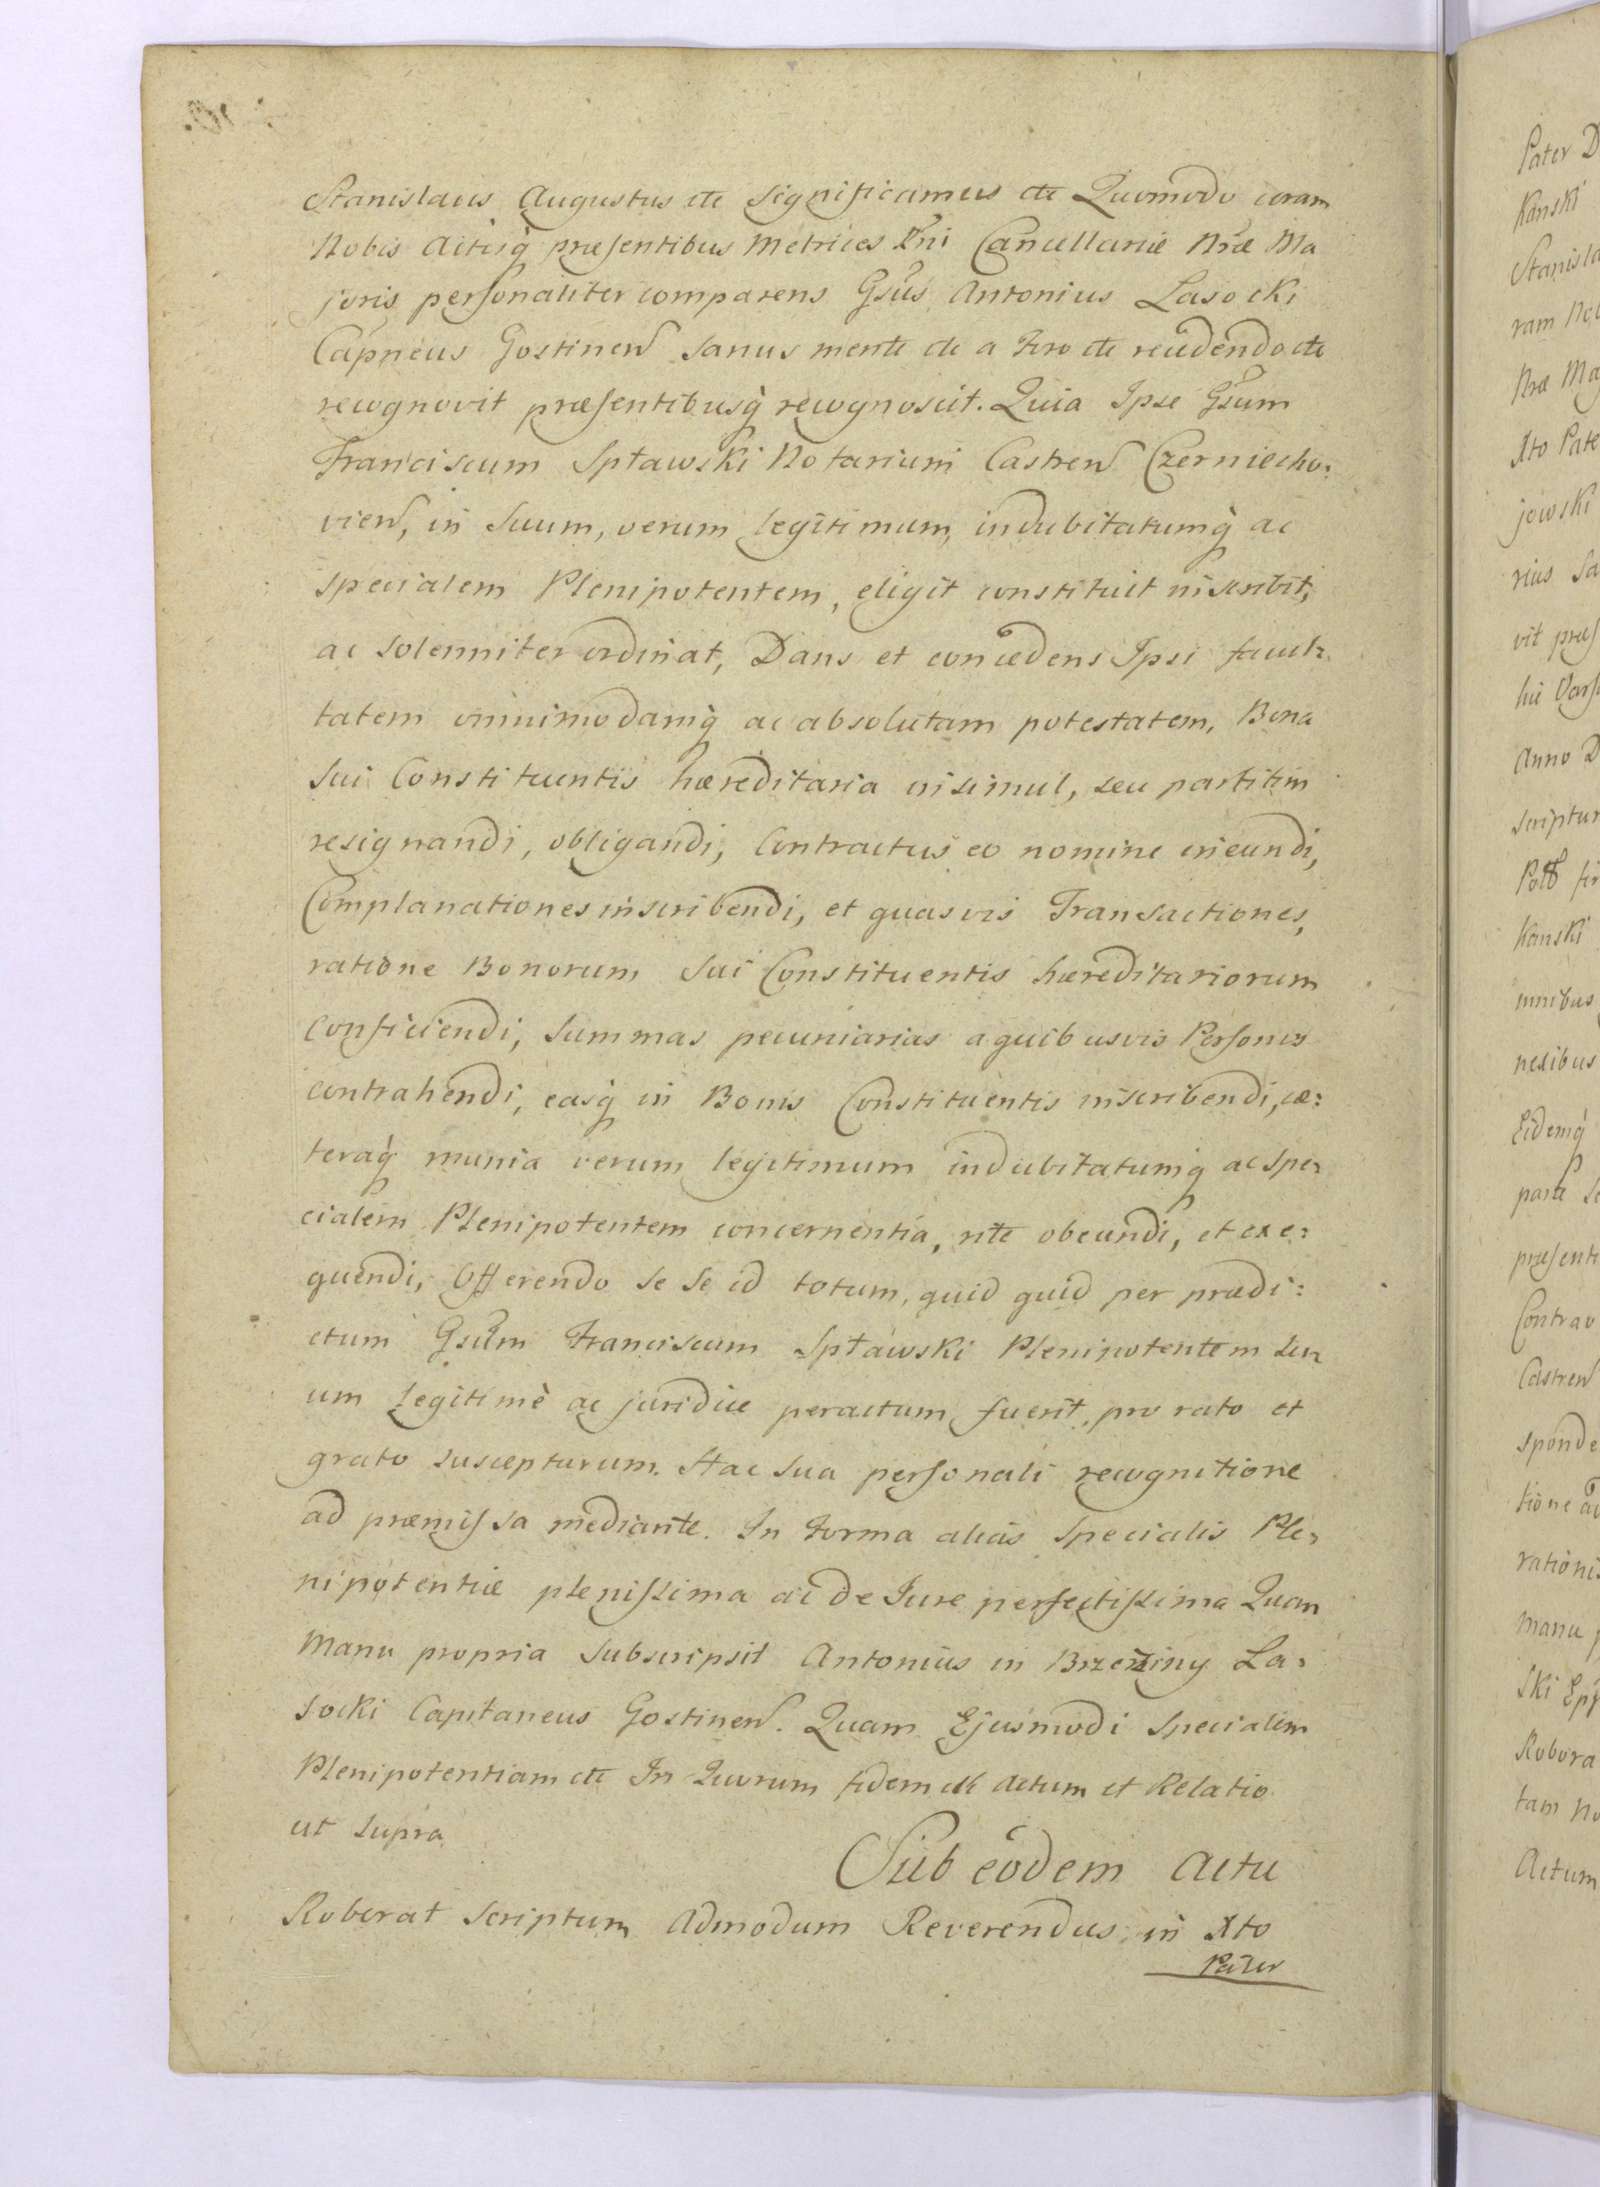 Stanislaus Augustus etc Significamus etc Quomodo coram
Nobis Actisq̀ præsentibus Metrices Rñi Cancellariæ Nræ Ma
joris personaliter comparens Gsus Antonius Lasocki
Capneus Gostinen Sanus mente etc a Foro etc recedendo etc
recognovit præsentibusq̀ recognoscit. Quia Ipse Gsum
Franciscum Spławski Notarium Castren Czerniecho:
vien, in Suum, verum legitimum, indubitatumq̀ ac
specialem Plenipotentem, eligit constituit inscribit,
ac solenniter ordinat, Dans et concedens Ipsi facul:
tatem omnimodamq̀ ac absolutam potestatem, Bona
Sui Constituentis hæreditaria insimul, seu partitim
resignandi, obligandi, Contractus eo nomine ineundi,
Complanationes inscribendi, et quasvis Transactiones,
ratione Bonorum Sui Constituentis hæreditariorum
conficiendi, Summas pecuniarias a quibusvis Personis
contrahendi, easq̀ in Bonis Constituentis inscribendi, cæ:
teraq̀ munia verum legitimum indubitatumq̀ ac Spe:
cialem Plenipotentem concernentia, rite obeundi, et exe:
quendi, Offerendo se se id totum, quid quid per prædi:
ctum Gsum Franciscum Spławski Plenipotentem Su:
um legitimè ac juridice peractum fuerit, pro rato et
grato suscepturum. Hac Sua personali recognitione
ad præmissa mediante. In Forma alias Specialis Ple:
nipotentiæ plenissima ac de Jure perfectissima Quam
Manu propria Subscripsit Antonius in Brzeziny La:
socki Capitaneus Gostinen. Quam Ejusmodi Specialem
Plenipotentiam etc In Quorum fidem etc Actum et Relatio
ut supra
Sub eodem Actu
Roberat Scriptum Admodum Reverendus in Xto
Pater
Pater D
Kanski
Stanisla
ram No
Nræ Ma
Xto Pate
jowski
rius Sa
vit præs
hic Vars
Anno D
scriptur
kanski
mnibus
nexibus
Eidemq̀
parte Se
præsenti
Contrav
Castren
sponde
tione
rationis
Manu p
ski Epp
Robora
tam No
Actum